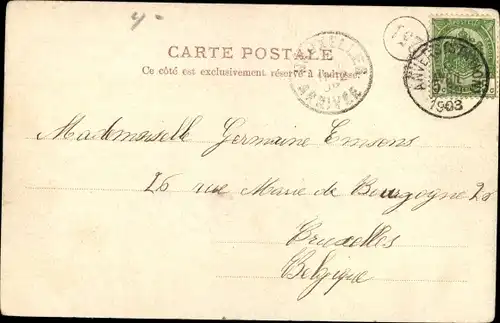 CARTE POSTALE
Ce côté est exclusivement réservé à l'adresse
BRUXELLES
ARRIVEE
ANVERS (STATION)
1903
Mademoiselle Germaine Emsons
26 rue Marie de Bourgogne 26
Bruxelles
Belgique